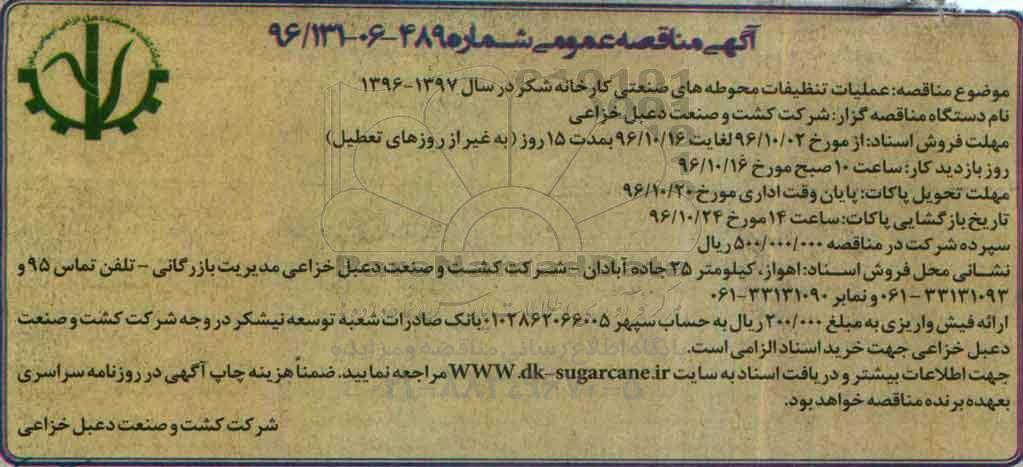 آگهی مناقصه عمومی شماره ۴۸۹-۰۶-۹۶/۱۳۱
موضوع مناقصه: عملیات تنظیفات محوطه های صنعتی کارخانه شکر در سال ۱۳۹۷-۱۳۹۶
نام دستگاه مناقصه گزار: شرکت کشت و صنعت دعبل خزاعی
مهلت فروش اسناد: از مورخ ۹۶/۱۰/۰۲ لغایت ۹۶/۱۰/۱۶ بمدت ۱۵ روز (به غیر از روزهای تعطیل)
روز بازدید کار: ساعت ۱۰ صبح مورخ ۹۶/۱۰/۱۶
مهلت تحویل پاکات: پایان وقت اداری مورخ ۹۶/۱۰/۲۰
تاریخ بازگشایی پاکات: ساعت ۱۴ مورخ ۹۶/۱۰/۲۴
سپرده شرکت در مناقصه ۵۰۰/۰۰۰/۰۰۰ ریال
نشانی محل فروش اسناد: اهواز، کیلومتر ۲۵ جاده آبادان - شرکت کشت و صنعت دعبل خزاعی مدیریت بازرگانی - تلفن تماس ۹۵ و
۰۶۱-۳۳۱۳۱۰۹۳ و نمابر ۰۶۱-۳۳۱۳۱۰۹۰
ارائه فیش واریزی به مبلغ ۲۰۰/۰۰۰ ریال به حساب سپهر ۰۱۰۲۸۶۲۰۶۶۰۰۵ بانک صادرات شعبه توسعه نیشکر در وجه شرکت کشت و صنعت
دعبل خزاعی جهت خرید اسناد الزامی است.
جهت اطلاعات بیشتر و دریافت اسناد به سایت WWW.dk-sugarcane.ir مراجعه نمایید. ضمناً هزینه چاپ آگهی در روزنامه سراسری
بعهده برنده مناقصه خواهد بود.
شرکت کشت و صنعت دعبل خزاعی